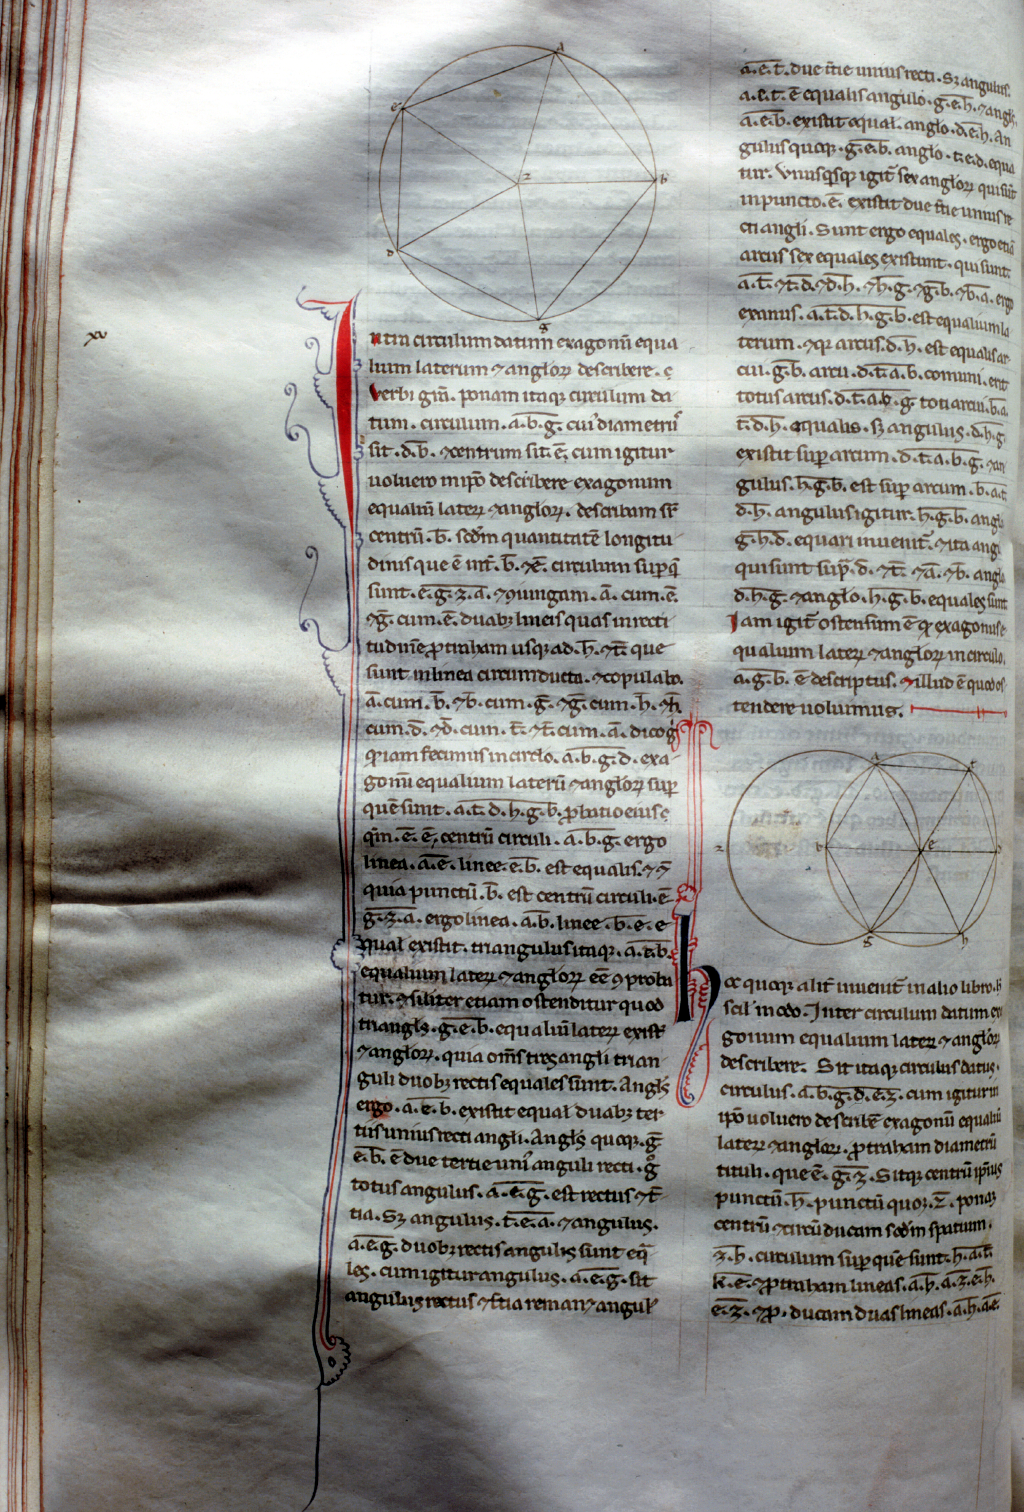 xv
Intra circulum datum exagonū equa
lium laterum ⁊ anglorꝝ describere. ę
Verbi grā. ponam itaqꝫ circulum da
tum. circulum. a. b. g. cui diametrū
sit. d. b. ⁊ centrum sit. e. cum igitur
uoluero in ip̄o describere exagonum
equaliū laterꝝ ⁊ anglorꝝ. describam sr̄
centrū. b. scd̄m quantitatē longitu
dinis que ē int̄. b. ⁊ e. circulum suꝑ q̄
sunt. e. g. z. a. ⁊ iungam. a. cum. e.
⁊ g. cum. e. duabꝫ lineis quas in recti
tudinē ꝓtraham usqꝫ ad. h. ⁊ t. que
sunt in linea circumducta. ⁊ copulabo.
a. cum. b. ⁊ b. cum. g. ⁊ g. cum. h. ⁊ h
cum. d. ⁊ d. cum. t. ⁊ t. cum. a. dico g̊
qꝫ iam fecimus in circlo. a. b. g. d. exa
gonū equalium laterū ⁊ anglorꝝ suꝑ
quē sunt. a. t. d. h. g. b. ꝓbatio eius ę
qm̄. e. ē centrū circuli. a. b. g. ergo
linea. a. e. linee. e. b. est equalis. ⁊
quia punctū. b. est centrū circuli. e.
g. z. a. ergo linea. a. b. linee. b. e. e
qual existit. triangulus itaqꝫ. a. e. b.
equalium laterꝝ ⁊ anglorꝝ eē ꝯproba
tur. ⁊ siliter etiam ostenditur quod
trianglꝰ. g. e. b. equaliū laterꝝ exist̄
⁊ anglorꝝ. quia om̄s tres angli trian
guli duobꝫ rectis equales sunt. Anglꝰ
ergo. a. e. b. existit equal duabꝫ ter
tiis unius recti angli. Anglꝰ quoqꝫ. g
e. b. ē due tertie uniꝰ anguli recti. g̊
totus angulus. a. e. g. est rectus ⁊ t̄
tia. Sꝫ angulus. t. e. a. ⁊ angulus.
a. e. g. duobꝫ rectis angulis sunt eq̄
les. cum igitur angulus. a. e. g. sit
angulus rectus ⁊ t̄tia remanꝫ angul
a. e. t. due t̄tie unius recti. Sꝫ angulus.
a. e. t. ē equalis angulo. g. e. h. ⁊ anglꝰ
a. e. b. existit equal. anglo. d. e. h. An
gulus quoqꝫ. g. e. b. anglo. t. e. d. equa
tur. Vnusqꝫsqꝫ igit̄ sex anglorꝝ qui sūt
in puncto. e. existit due t̄tie unius re
cti angli. Sunt ergo equales. ergo etiā
arcus sex equales existunt. qui sunt.
a. t. ⁊ t. d. ⁊ d. h. ⁊ h. g. ⁊ g. b. ⁊ b. a. ergo
exanus. a. t. d. h. g. b. est equalium la
terum. ⁊ qꝫ arcus. d. h. est equalis ar
cui. g. b. arcu. d. t. a. b. comuni. erit
totus arcus. d. t. a. b. g. toti arcui. b. a.
t. d. h. equalis. sꝫ angulus. d. h. g.
existit suꝑ arcum. d. t. a. b. g. ⁊ an
gulus. h. g. b. est suꝑ arcum. b. a. t.
d. h. angulus igitur. h. g. b. anglo
g. h. d. equari inuenit̄. ⁊ ita angl
qui sunt suꝑ. d. ⁊ t. ⁊ a. ⁊ b. anglo
d. h. g. ⁊ anglo. h. g. b. equales sunt
Iam igit̄ ostensum ē qꝫ exagonus e
qualium laterꝝ ⁊ anglorꝝ in circulo.
a. g. b. ē descriptus. ⁊ illud ē quod os
tendere uoluimus.
Hoc quoqꝫ alit̄ inuenit̄ in alio libro. h
scil modo. Inter circulum datum exa
gonum equalium laterꝝ ⁊ anglorꝝ
describere. Sit itaqꝫ circulus datus.
circulus. a. b. g. d. e. z. cum igitur in
ip̄o uoluero describe exagonū equaliū
laterꝝ ⁊ anglorꝝ. ꝓtraham diametrū
que ē. g. z. Sitqꝫ centrū ip̄ius
punctū. h. punctū quoqꝫ. z. ponaꝫ
centrū ⁊ circū ducam scd̄m spatium.
z. h. circulum suꝑ que sunt. h. a. t.
k. e. ⁊ ꝓtraham lineas. a. h. a. z. e. h.
e. z. ⁊ ꝓ. ducam duas lineas. a. h. a. e.